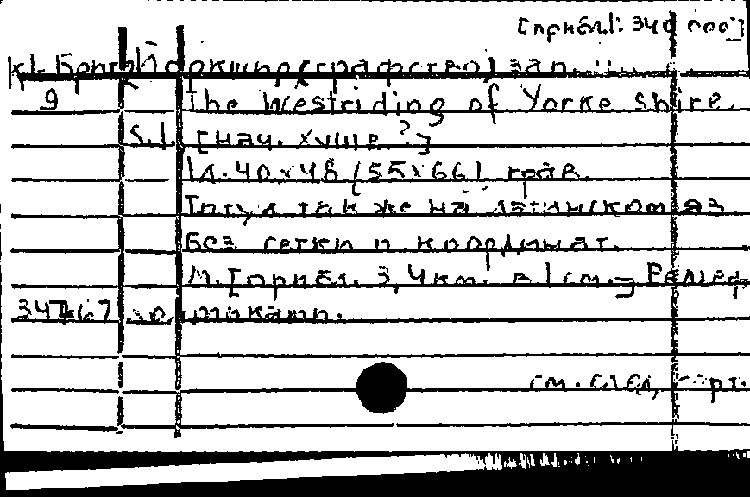 [прибл. 340 000]
К1-Брит Йоркшир (графство) зап.
9 The Westriding of Yorke Shire.
S.l. [нач. XVIII в ?]
1 л. 40 x 48 (55 x 66) грав.
Титул так же на латинском яз
Без сетки и координат.
М. [прибл. 3,4 км. в 1 см.] Рельеф
холмиками.
см. след, карт.